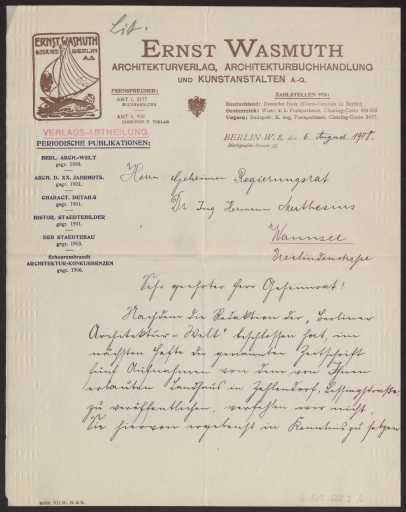 Lit.
ERNST WASMUTH
BERLIN
A.G.
ERNST WASMUTH
ARCHITEKTURVERLAG, ARCHITEKTURBUCHHANDLUNG
UND KUNSTANSTALTEN A.-G.
FERNSPRECHER:
AMT I, 2177
BUCHHANDLUNG
AMT I,
DIREKTION U. VERLAG
ZAHLSTELLEN FÜR:
Deutschland: Deutsche Bank
Oesterreich: Wien: k. k. Postsparkasse, Clearing-Conto
Ungarn: Budapest: K. ung. Postsparkasse, Clearing-Conto
VERLAGS-ABTHEILUNG.
PERIODISCHE PUBLIKATIONEN:
BERLIN W. 8, den 6. August 1908.
Markgrafen-Strasse
BERL. ARCH.-WELT
gegr. 1898.
ARCH. D. XX. JAHRHDTS.
gegr. 1901.
CHARACT. DETAILS
gegr. 1901.
HISTOR. STAEDTEBILDER
gegr. 1901.
DER STAEDTEBAU
gegr. 1903.
Scheurembrandt
ARCHITEKTUR-KONKURRENZEN
gegr. 1906.
Herrn Geheimen Regierungsrat
Dr Ing Hermann Muthesius
Wannsee
Sehr geehrter Herr Geheimrat!
Nachdem die Redaktion der „Berliner
Architektur-Welt" beschlossen hat, im
nächsten Hefte der genannten Zeitschrift
Aufnahmen von dem von Ihnen
erbauten Landhaus in Zehlendorf,
zu veröffentlichen, verfehlen wir nicht,
Sie hiervon ergebenst in Kenntnis zu setzen.